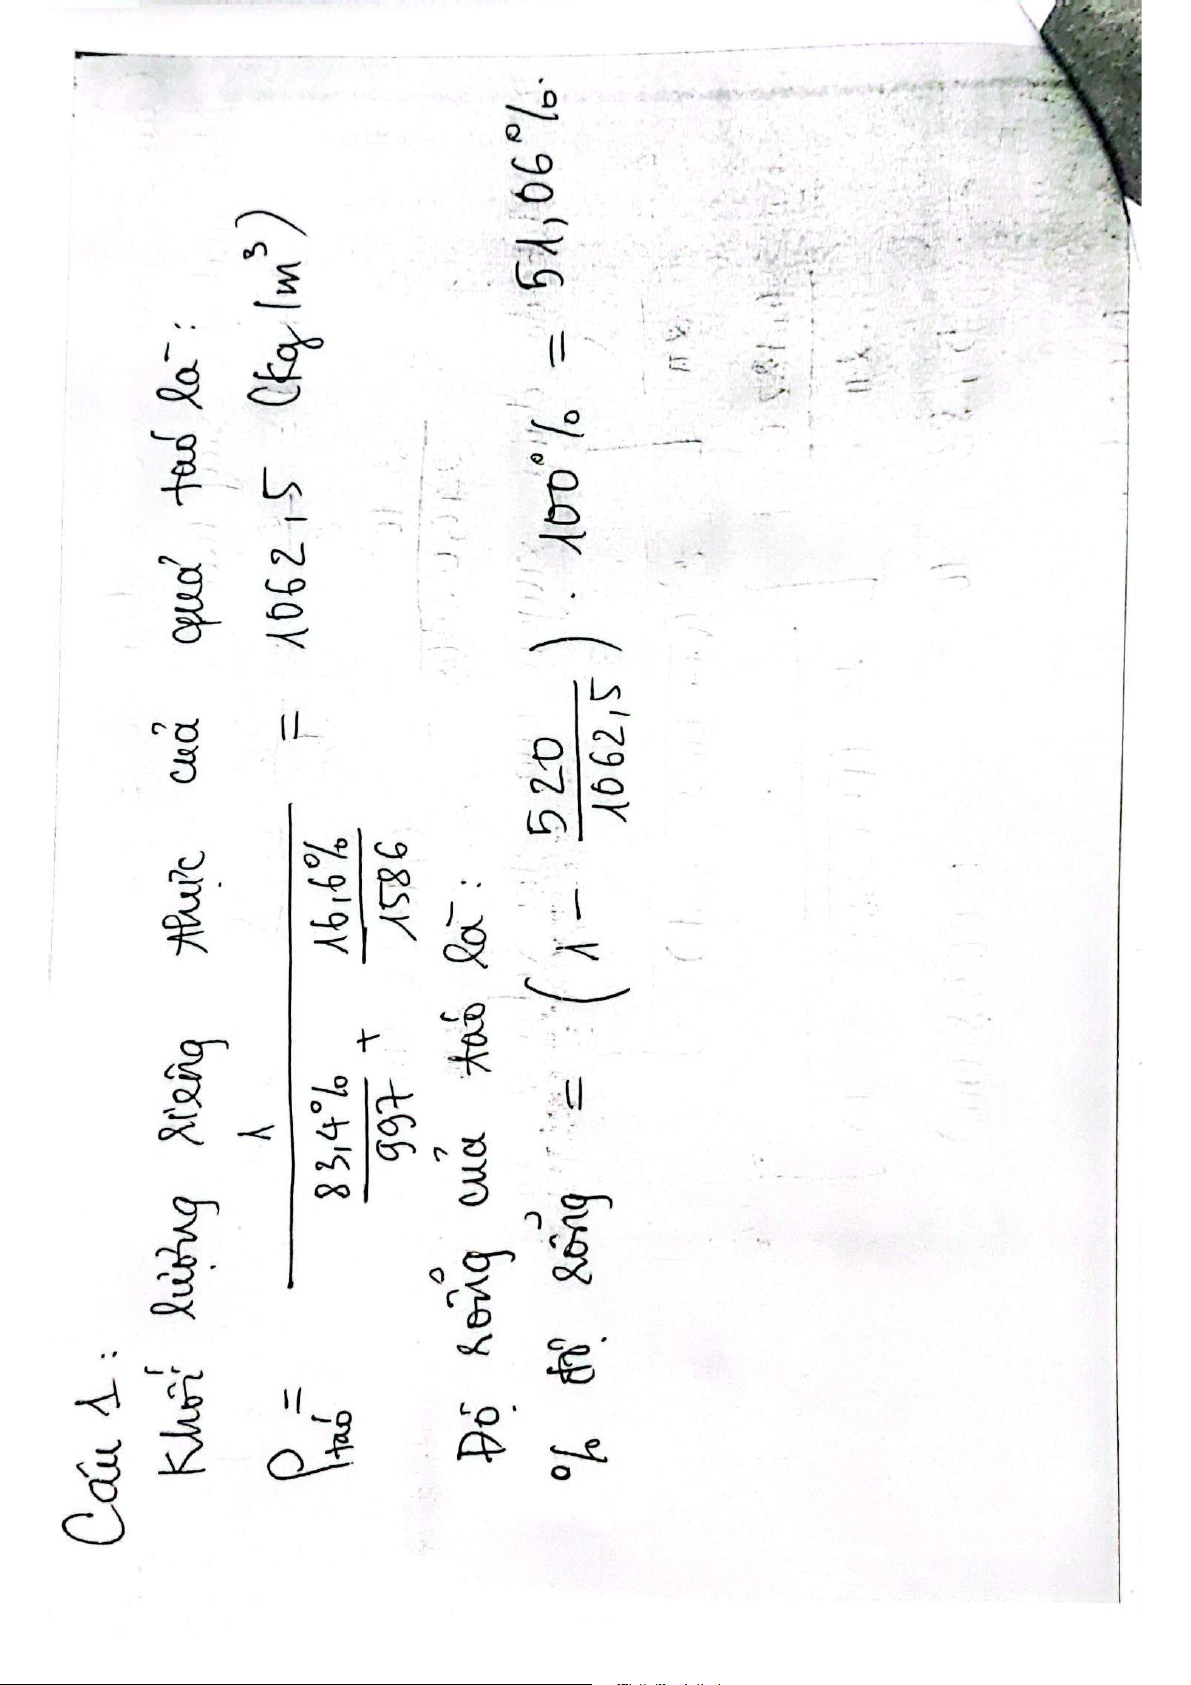 Câu 1:
Khối lượng riêng thực của quả táo là:
ρ táo = 1 / (83,4% / 997 + 16,6% / 1586) = 1062,5 (kg/m³)
Độ rỗng của táo là:
% độ rỗng = (1 - 520 / 1062,5) . 100% = 51,06%.